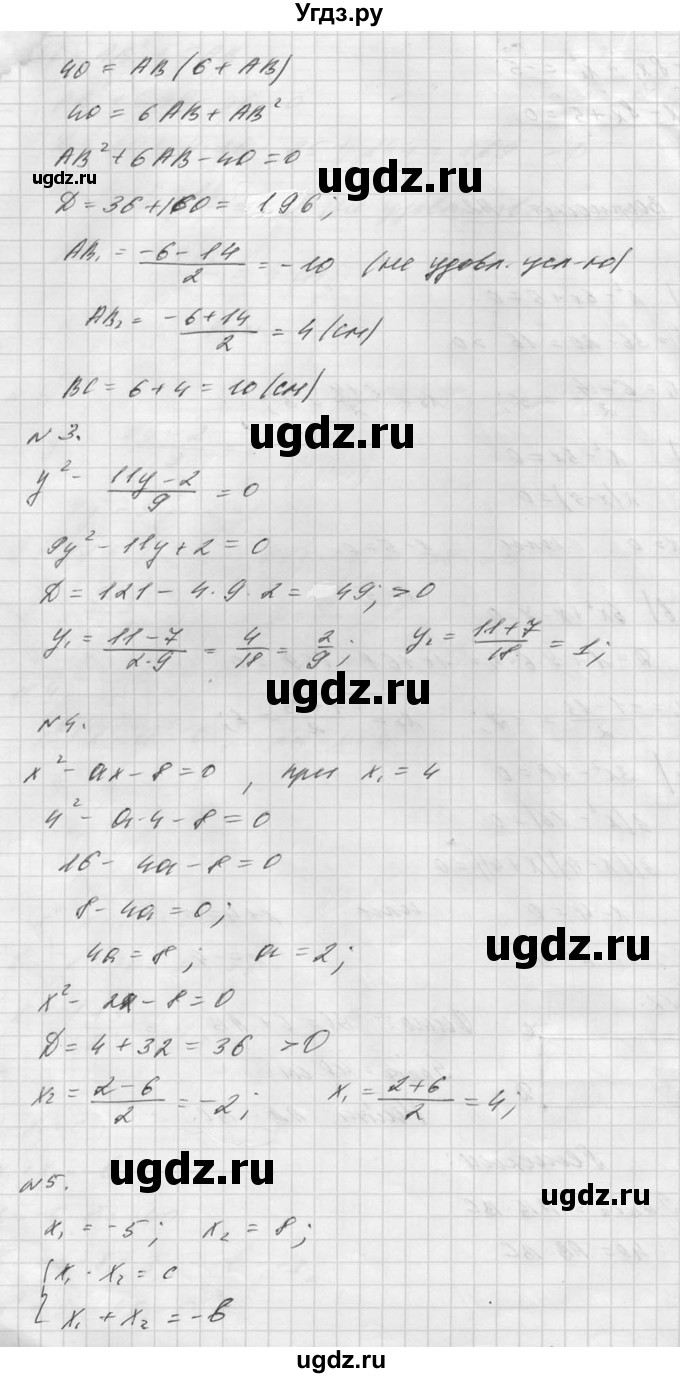 Угдз.ру
40 = AB (6 + AB)
40 = 6AB + AB²
AB² + 6AB - 40 = 0
ugdz.ru
ugdz.ru
Д = 36 + 160 = 196;
AB₁ = (-6 - 14)/2 = -10 (не удовл. усл-ю)
AB₂ = (-6 + 14)/2 = 4 (см)
BC = 6 + 4 = 10 (см)
ugdz.ru
№3.
y² - (11y - 2)/9 = 0
9y² - 11y + 2 = 0
Д = 121 - 4·9·2 = 49; > 0
y₁ = (11 - 7)/(2·9) = 4/18 = 2/9; y₂ = (11 + 7)/18 = 1;
ugdz.ru
№4.
x² - ax - 8 = 0, при x₁ = 4
4² - a·4 - 8 = 0
16 - 4a - 8 = 0
8 - 4a = 0;
ugdz.ru
4a = 8; a = 2;
x² - 2x - 8 = 0
Д = 4 + 32 = 36 > 0
x₂ = (2 - 6)/2 = -2; x₁ = (2 + 6)/2 = 4;
ugdz.ru
№5.
x₁ = -5; x₂ = 8;
{ x₁ · x₂ = c
ugdz.ru
x₁ + x₂ = -в
ugdz.ru